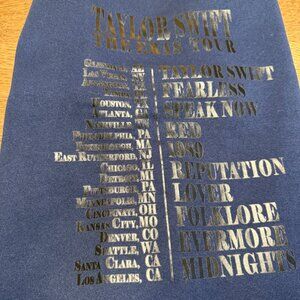 TAYLOR SWIFT
THE ERAS TOUR
LAS VEGAS, NV
HOUSTON, TX
ATLANTA, GA
NASHVILLE, TN
PHILADELPHIA, PA
FOXBOROUGH, MA
EAST RUTHERFORD, NJ
CHICAGO, IL
DETROIT, MI
PITTSBURGH, PA
MINNEAPOLIS, MN
OH
KANSAS CITY, MO
DENVER, CO
SEATTLE, WA
SANTA CLARA, CA
LOS ANGELES, CA
TAYLOR SWIFT
FEARLESS
SPEAK NOW
RED
1989
REPUTATION
LOVER
FOLKLORE
EVERMORE
MIDNIGHTS